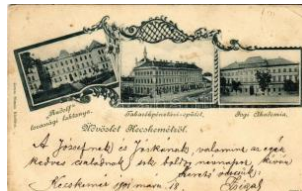 "Rudolf"
lovassági laktanya.
Takarékpénztári-épület.
Jogi Akadémia.
Üdvözlet Kecskemétről.
A Józsefnak és Jorkának, valamint az egész
kedves családnak sok boldog névnapot kíván
szerető
Kecskemét 1901 márc. 18.